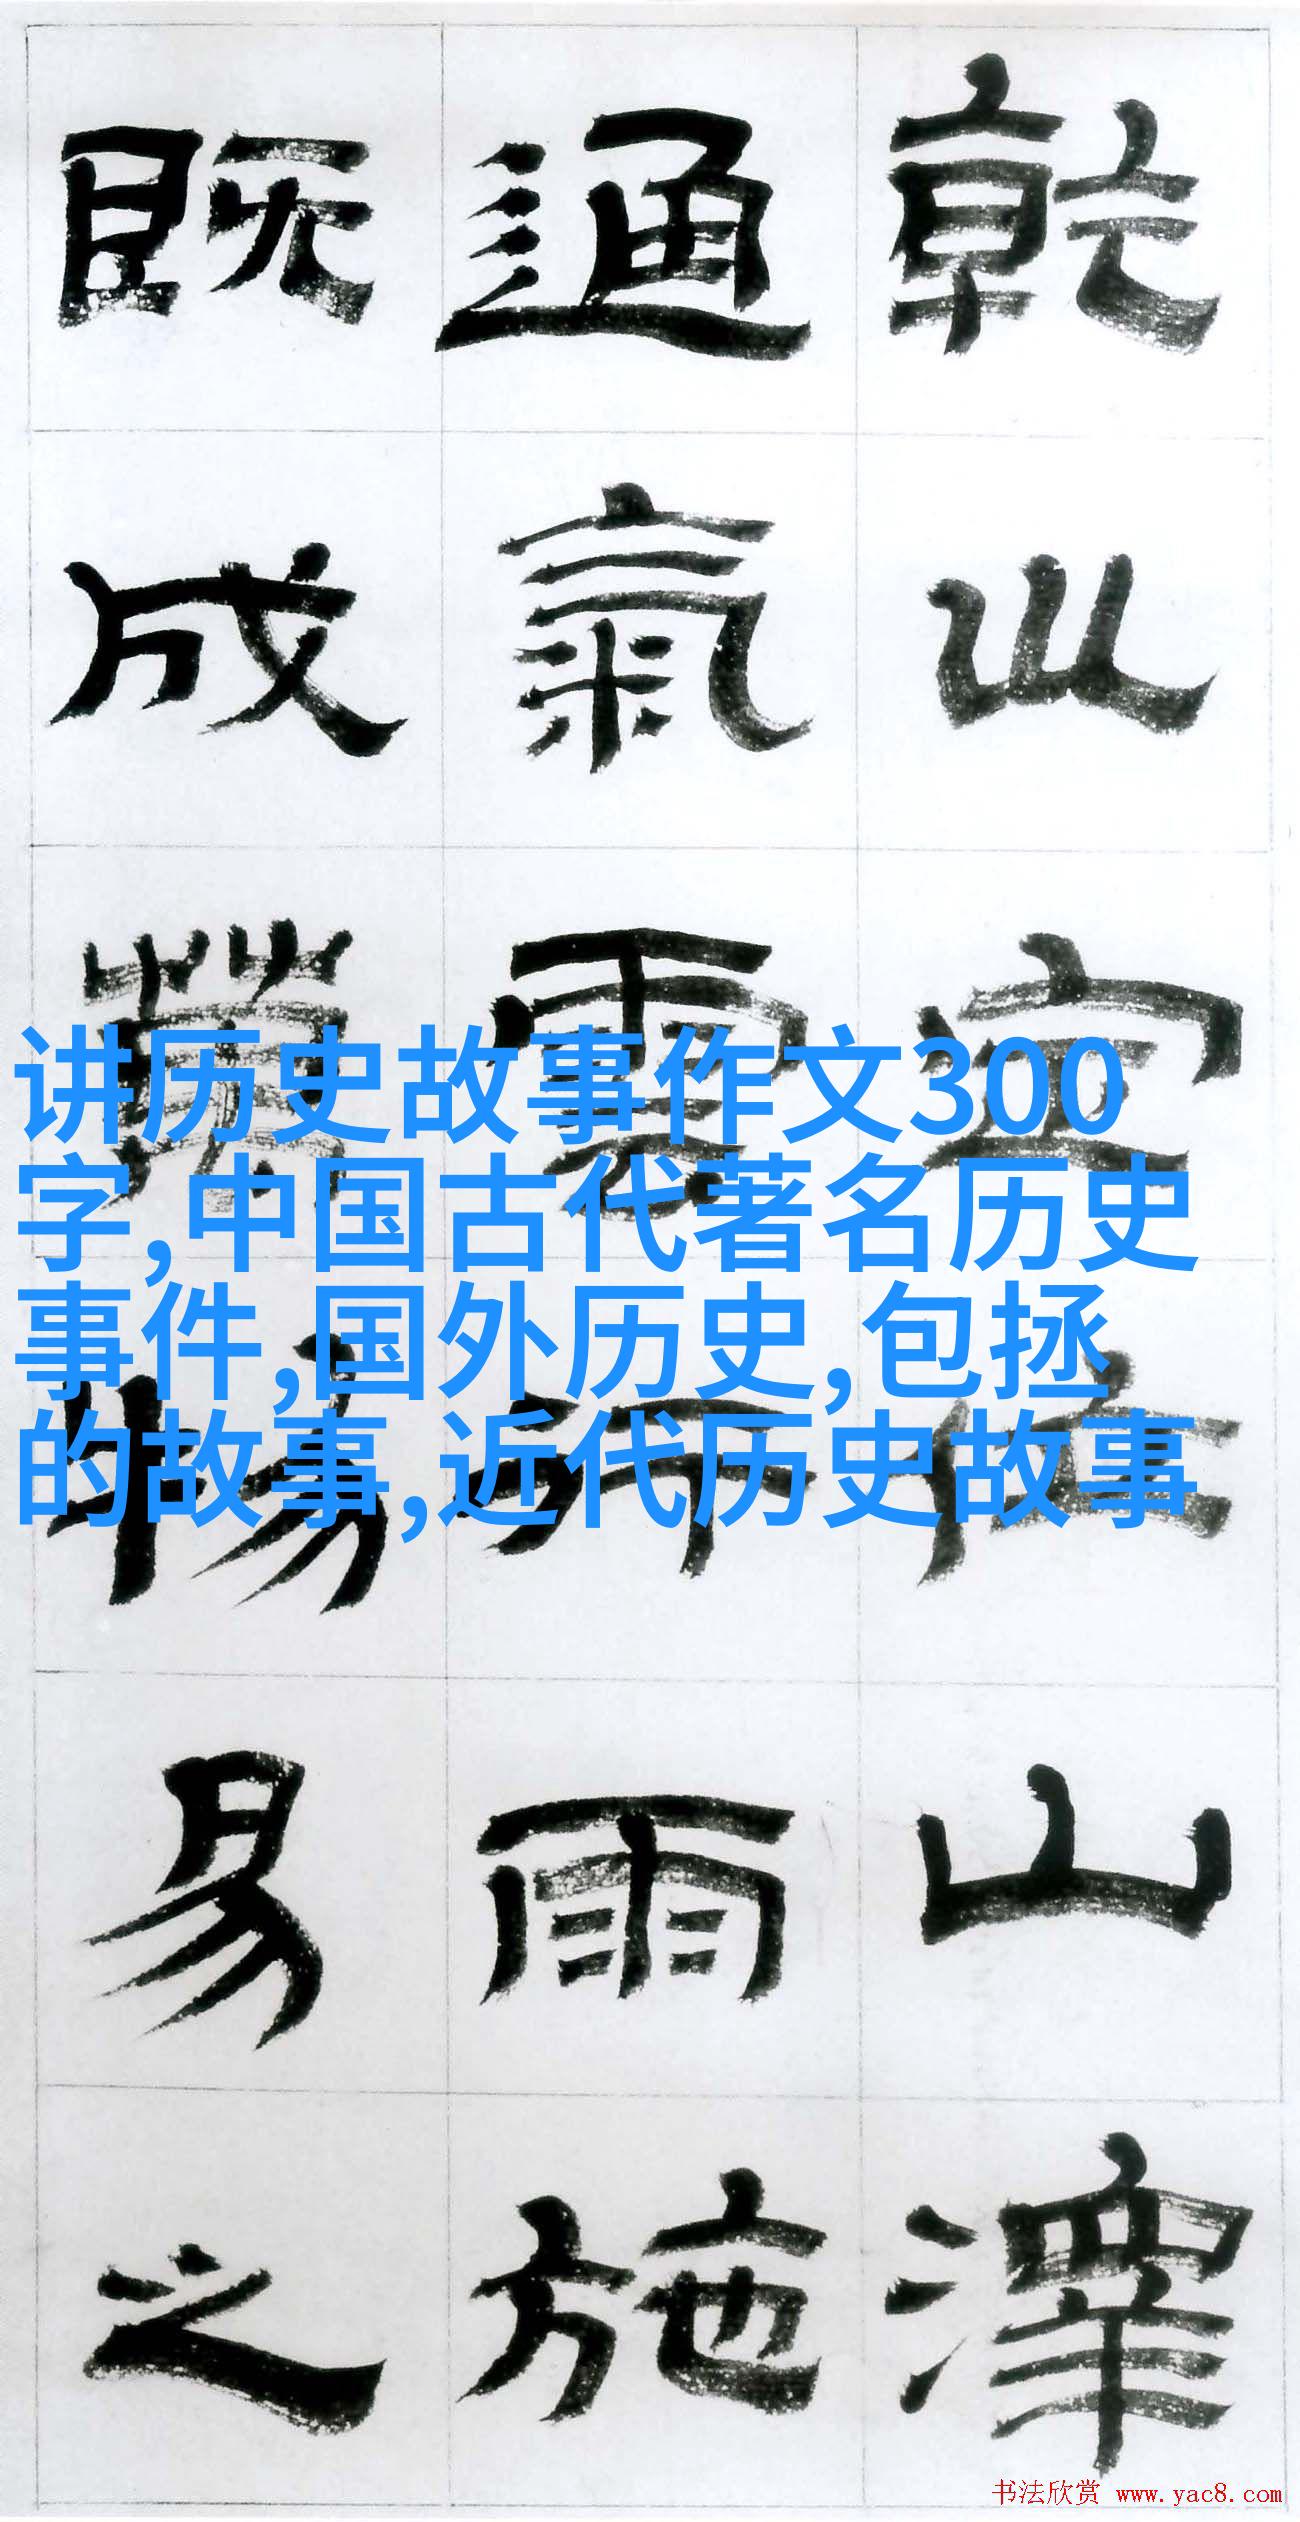 乾坤定位山澤
通氣雲行雨施
既成萬物易之
讲历史故事作文300
字,中国古代著名历史
事件,国外历史,包拯
的故事,近代历史故事
书法欣赏 www.yac8.com